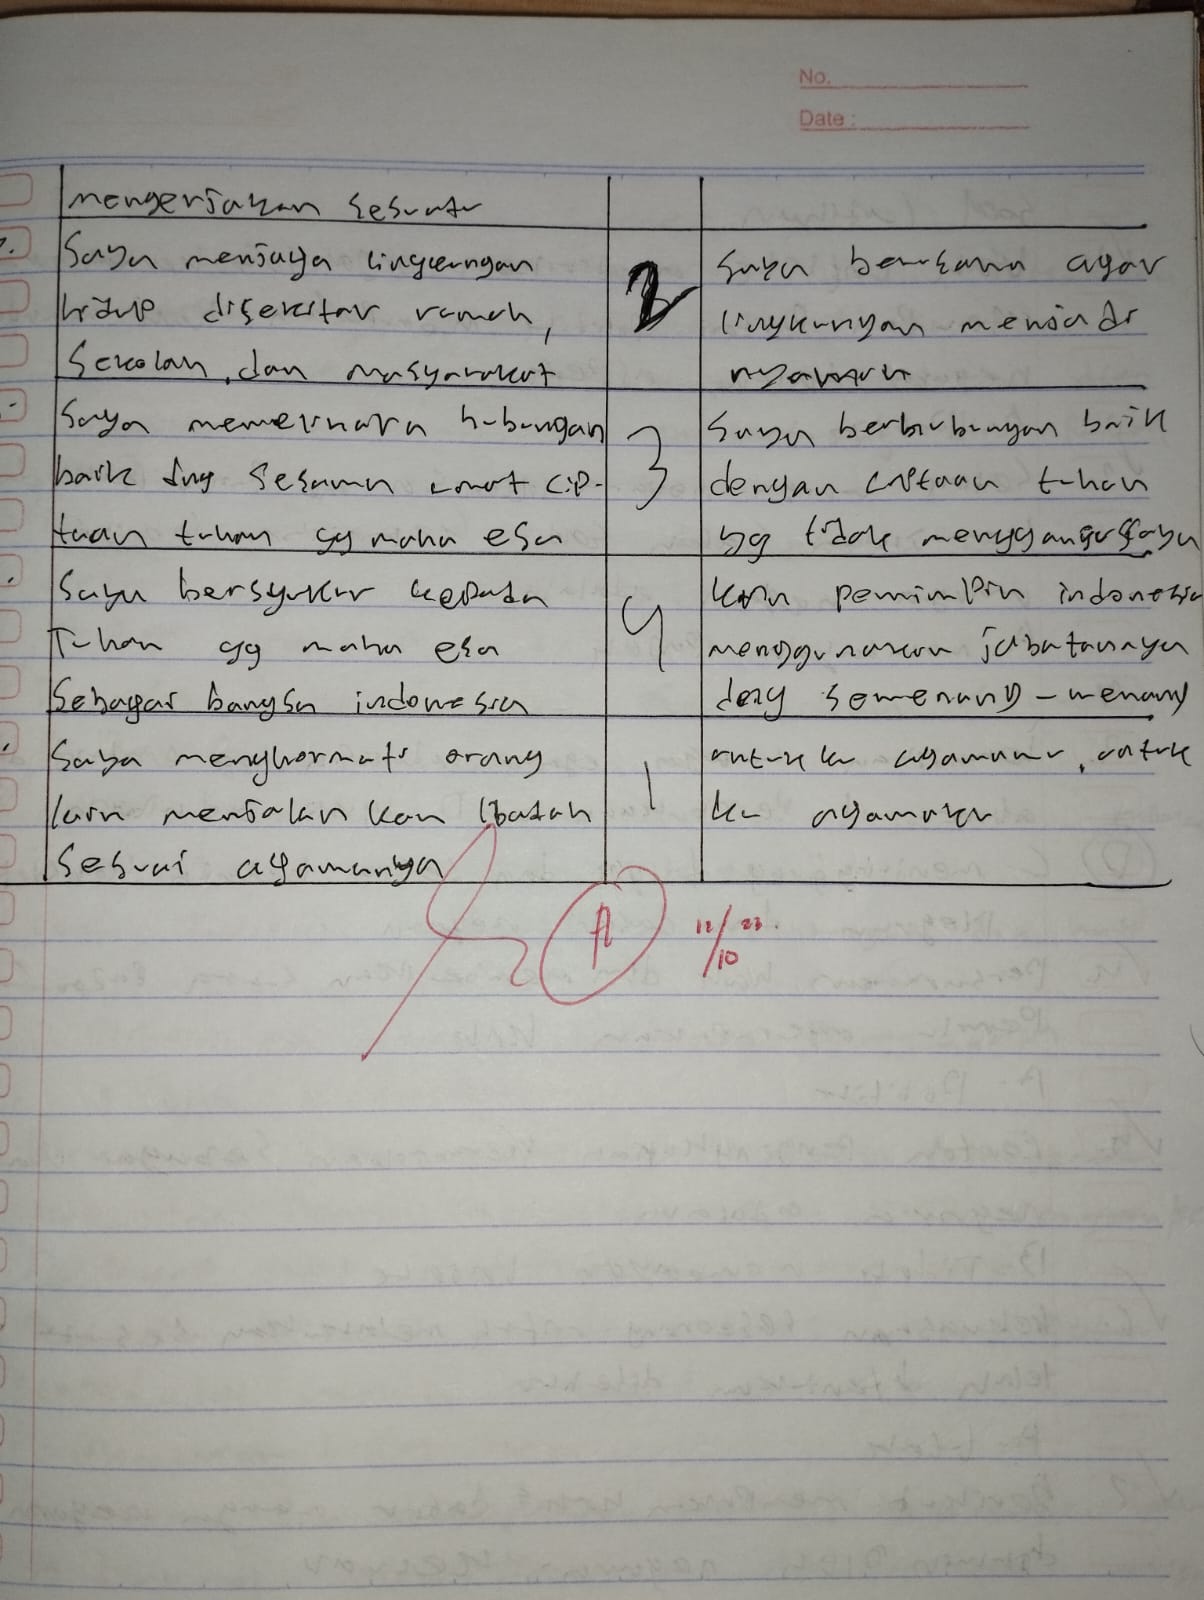 No.
Date :
mengerjakan sesuatu
Saya menjaga lingkungan
hidup disekitar rumah,
Sekolah, dan masyarakat
2
Saya berusaha agar
lingkungan menjadi
nyaman
Saya memelihara hubungan
baik dng sesama umat cip-
taan tuhan yg maha esa
3
Saya berhubungan baik
dengan ciptaan tuhan
yg tidak mengganggu saya
Saya bersyukur kepada
Tuhan yg maha esa
Sebagai bangsa indonesia
4
krn pemimpin indonesia
menggunakan jabatannya
deng semenang-menang
Saya menghormati orang
lain menjalankan ibadah
sesuai agamanya
1
untuk ku agamamu, untuk
ku agamaku
A
12/10 23.